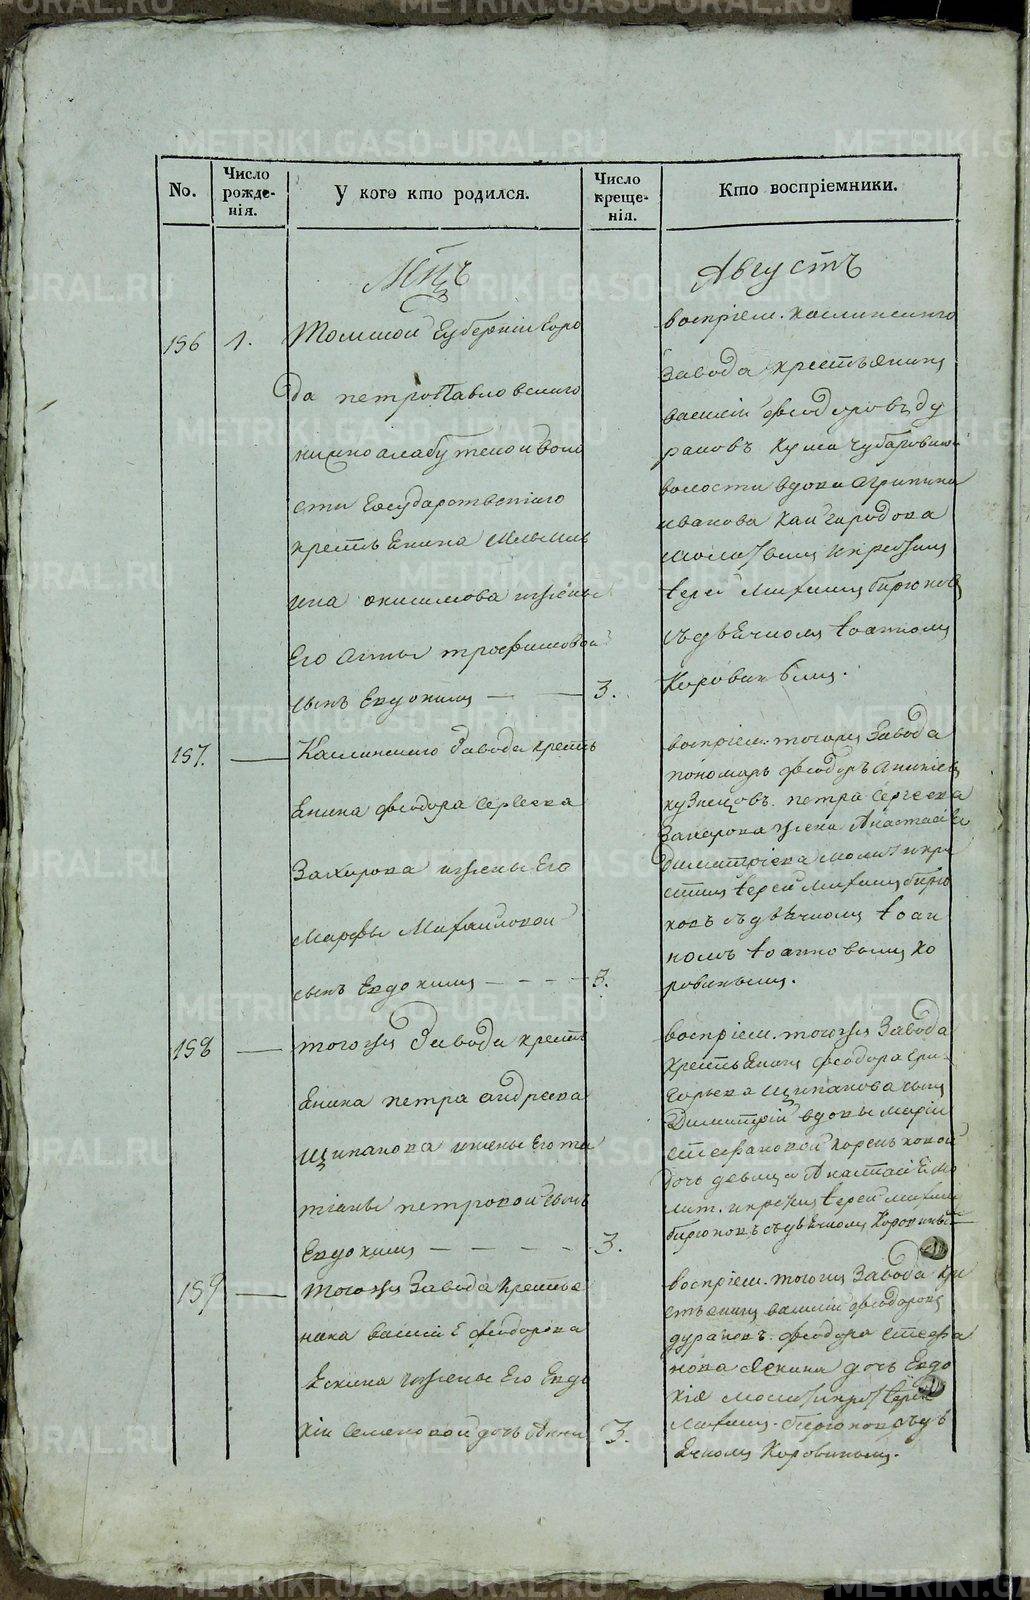 METRIKI.GASO-URAL.RU
No.
Число рожде-нія.
У кого кто родился.
Число креще-нія.
Кто воспріемники.
Мцъ
Августъ
156
1.
Томской Губерніи Горо
да петроПавловскаго
волости Государственнаго
крестьЕнина
ина онисимова жены
Его Анны трофимовой
сынъ Евдокимъ — — 3.
воспріем. Каслинскаго
Завода крестьянинъ
василій феодоровъ ду
раковъ
волости вдова Агрипина
иванова Кайгородова
молитвилъ и крестилъ
Іерей Михаилъ бирюковъ
съ дьЕчкомъ Іоанномъ
Коровинымъ.
157. —
Каслинскаго Завода крестъ
Енина феодора Сергеева
Захарова жены Его
Марфы Михайловой
сынъ Евдокимъ - - - - 3.
воспріем. тогожъ Завода
пономарь феодоръ Ананіевъ
кузнецовъ. петра Сергеева
Захарова жена Анастасія
Димитріева молит и кре
стилъ Іерей Михаилъ бирю
ковъ съ дьЕчкомъ Іоан
номъ Іоанновымъ Ко
ровинымъ.
158 —
тогожъ Завода крестъ
Енина петра андреева
Щипанова жены Его та
тіаны петровой сынъ
Евдокимъ — - - - 3.
воспріем. тогожъ Завода
крестьЕнинъ феодора Гри-
горьева Щипанова сынъ
Димитрій вдовы маріи
стефановой
дочь девица Анастасія мо
лит. и крестилъ Іерей михаил
бирюковъ съ дьЕчкомъ Коровинымъ
159 —
тогожъ Завода крестье
нина василіЕ феодорова
Ескина жены Его Евдо
кіи Семеновой дочь Анна 3.
воспріем. тогожъ Завода кре
стьянинъ василій феодоровъ
дураковъ. феодора стефа
нова Ескина дочь Евдо
кія молит и крест Іерей
Михаилъ бирюковъ съ дь
Ечкомъ Коровинымъ.